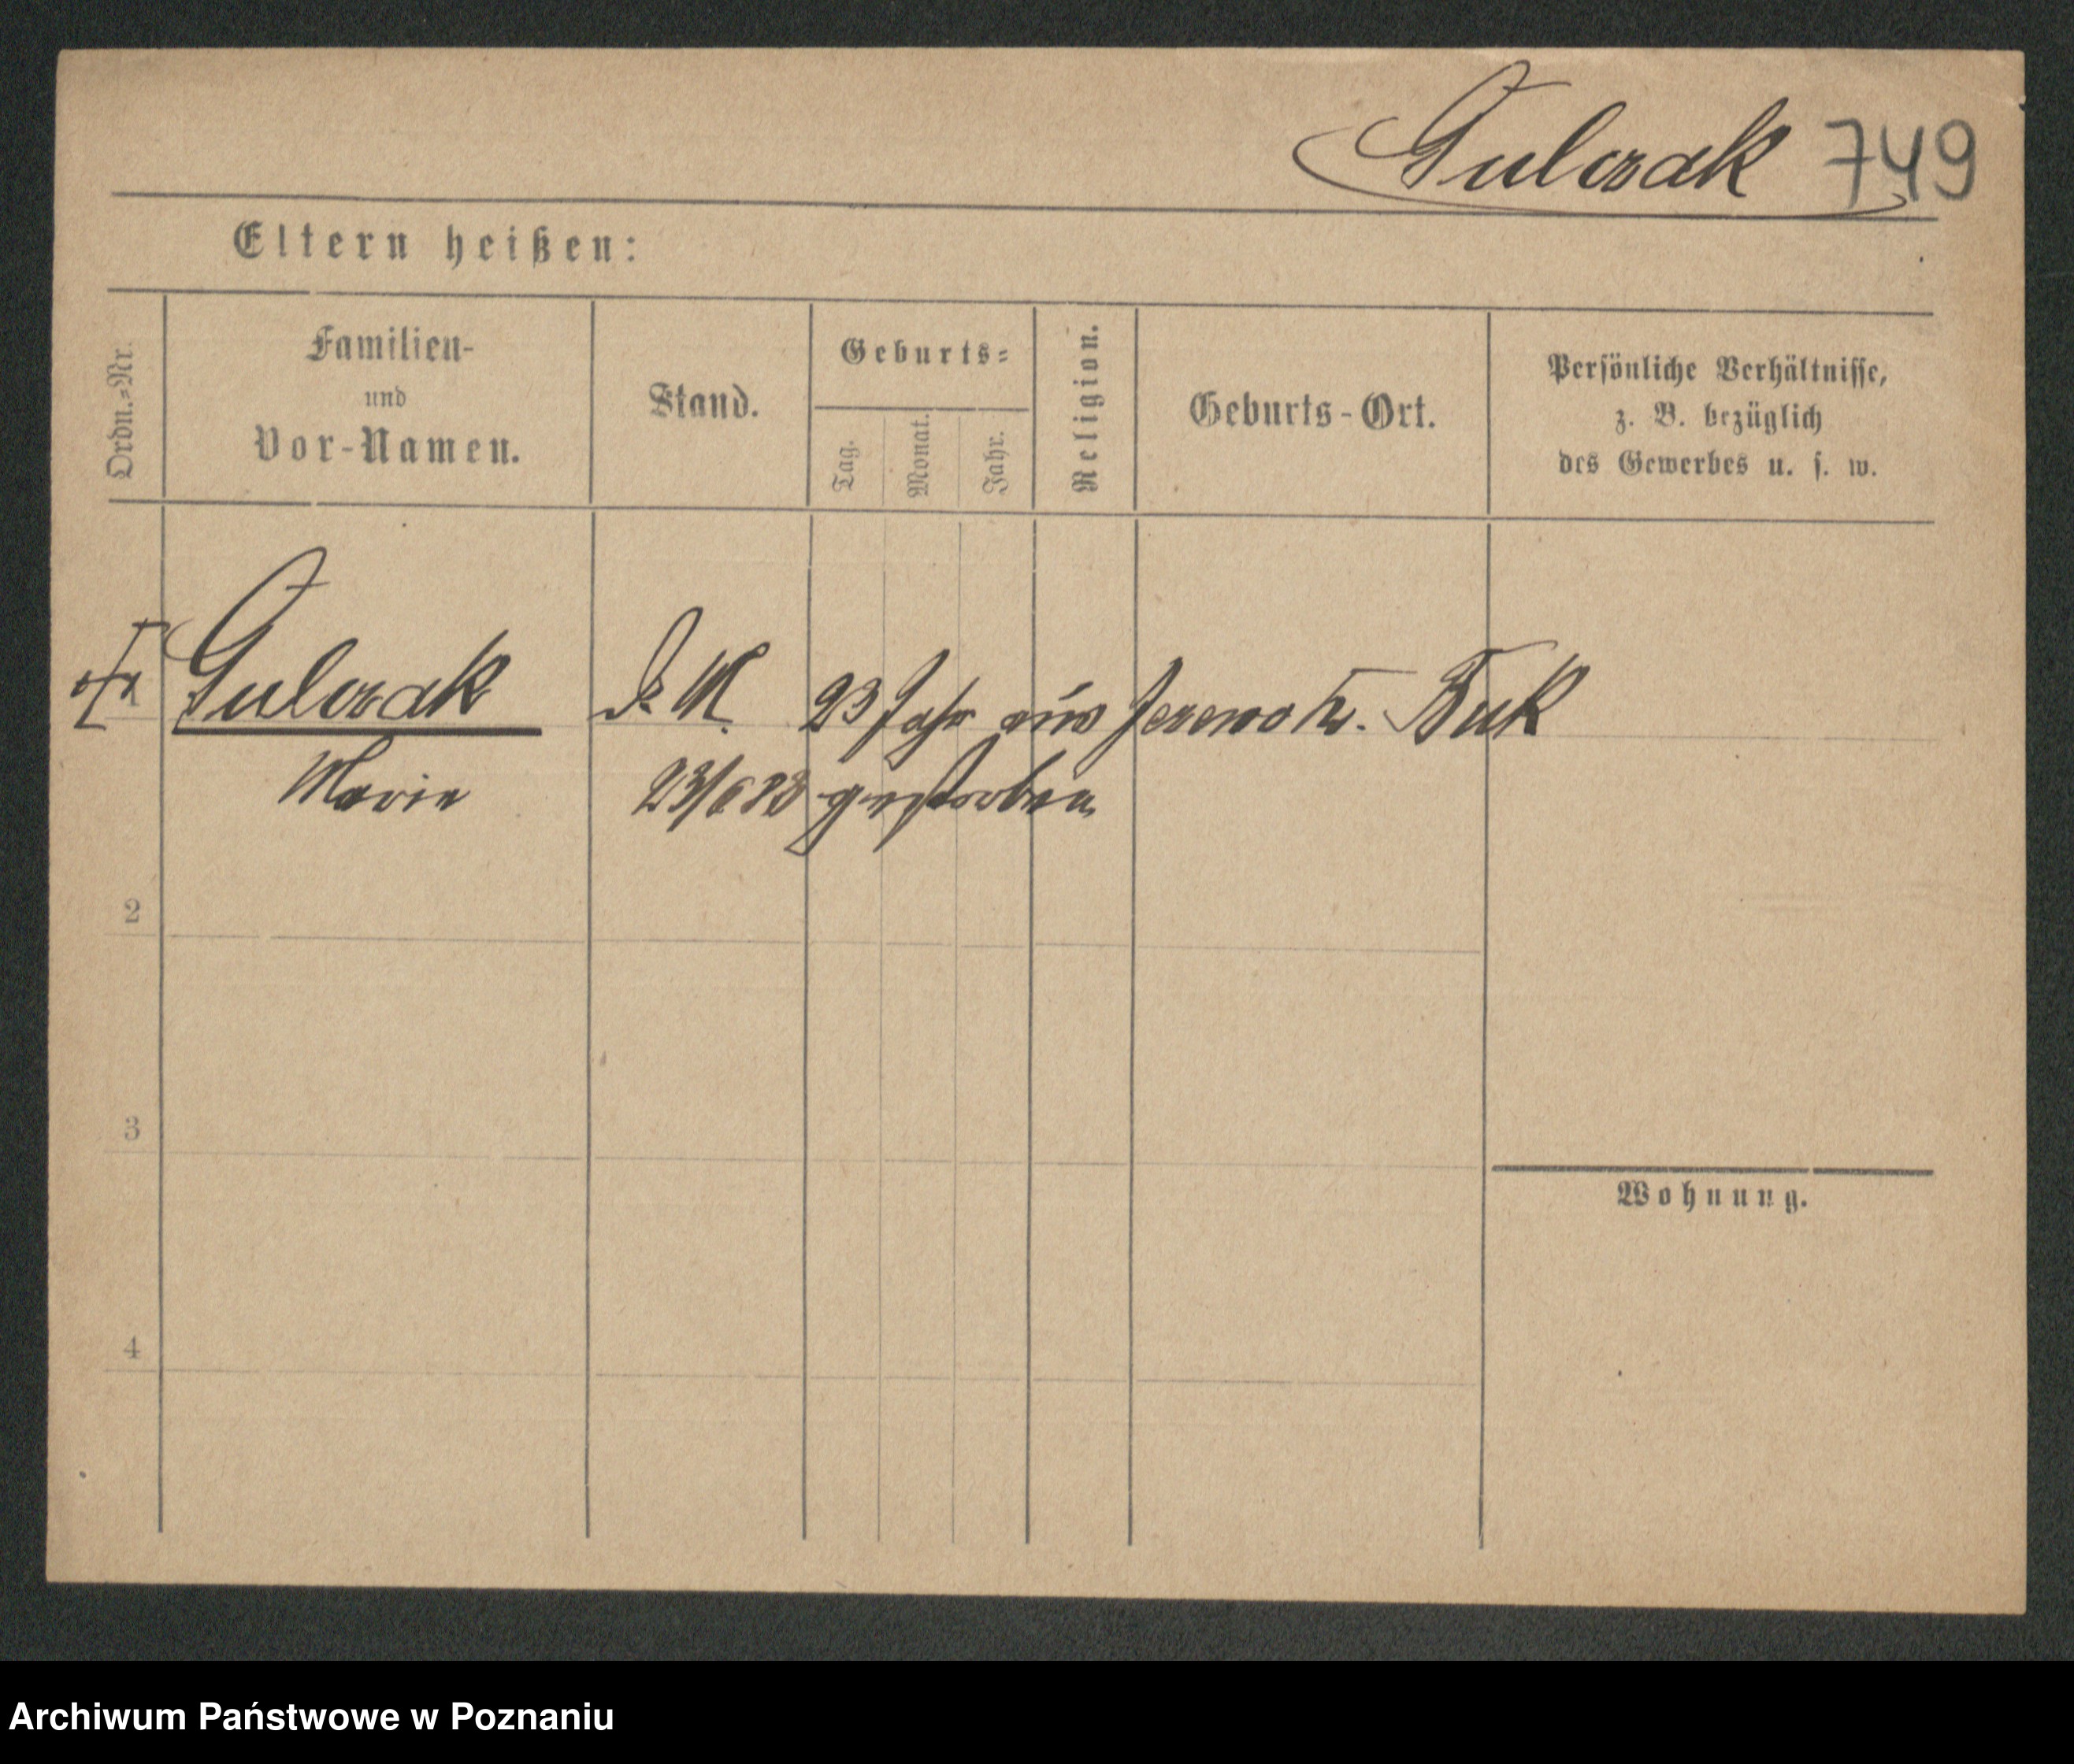 Gulczak 749
Eltern heißen:
Ordn.-Nr.
Familien-
und
Vor-Namen.
Stand.
Geburts-
Tag.
Monat.
Jahr.
Religion.
Geburts-Ort.
Persönliche Verhältnisse,
z. B. bezüglich
des Gewerbes u. s. w.
1 Gulczak 23 Jahr aus Kr. Buk
Marie 23/6 88 gestorben
2
3
Wohnung.
4
Archiwum Państwowe w Poznaniu